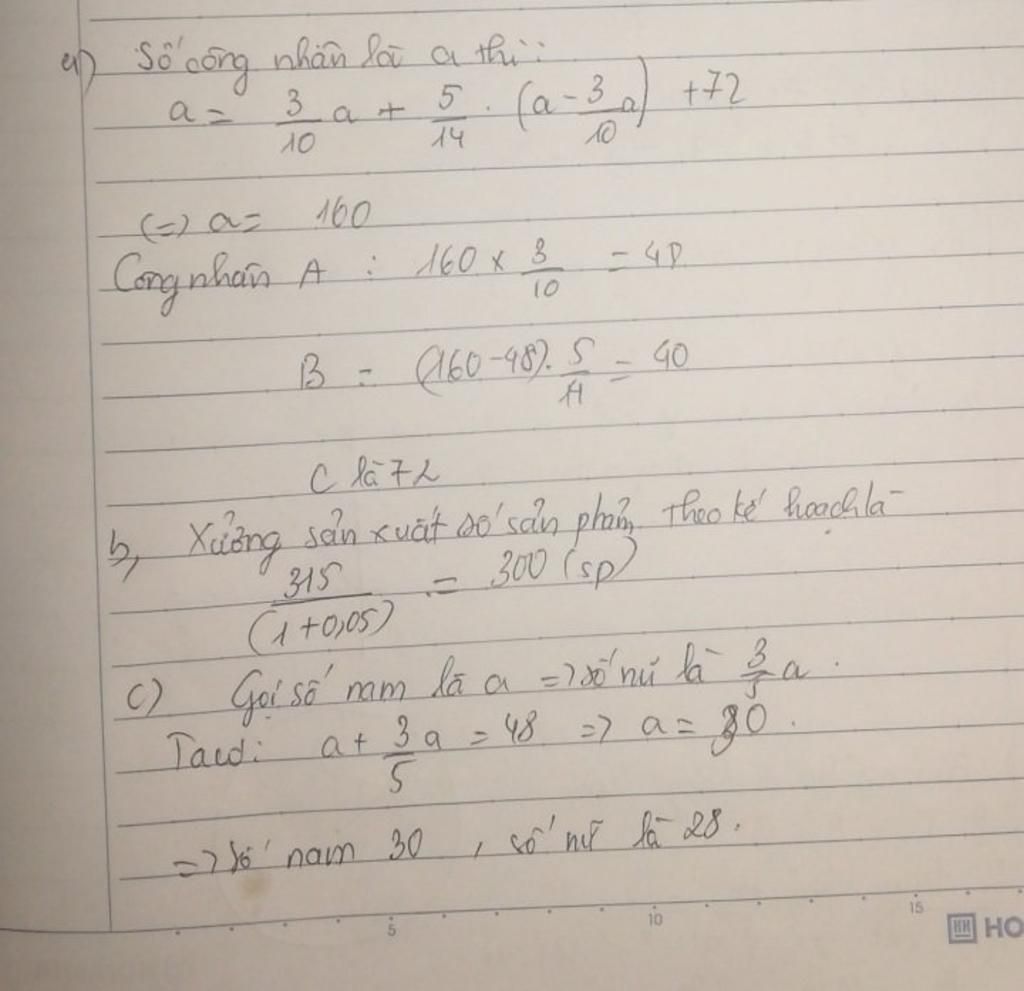 a) Số công nhân là a thì:
a = 3/10 a + 5/14 . (a - 3/10 a) + 72
(=) a = 160
Công nhân A : 160 x 3/10 = 48
B = (160 - 48). 5/14 = 40
C là 72
b, Xưởng sản xuất số sản phẩm theo kế hoạch là
315/(1+0,05) = 300 (sp)
c) Gọi số nam là a => số nữ là 3/5 a.
Ta có: a + 3/5 a = 48 => a = 30.
=> số nam 30 , số nữ là 28.
5 10 15
HO